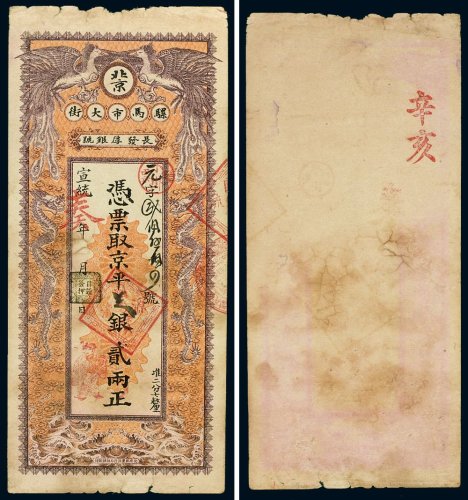 北京
騾馬市大街
長發厚銀號
元字 號
憑票取京平足銀貳兩正
宣統叁年 月 日
准二分七釐
辛亥